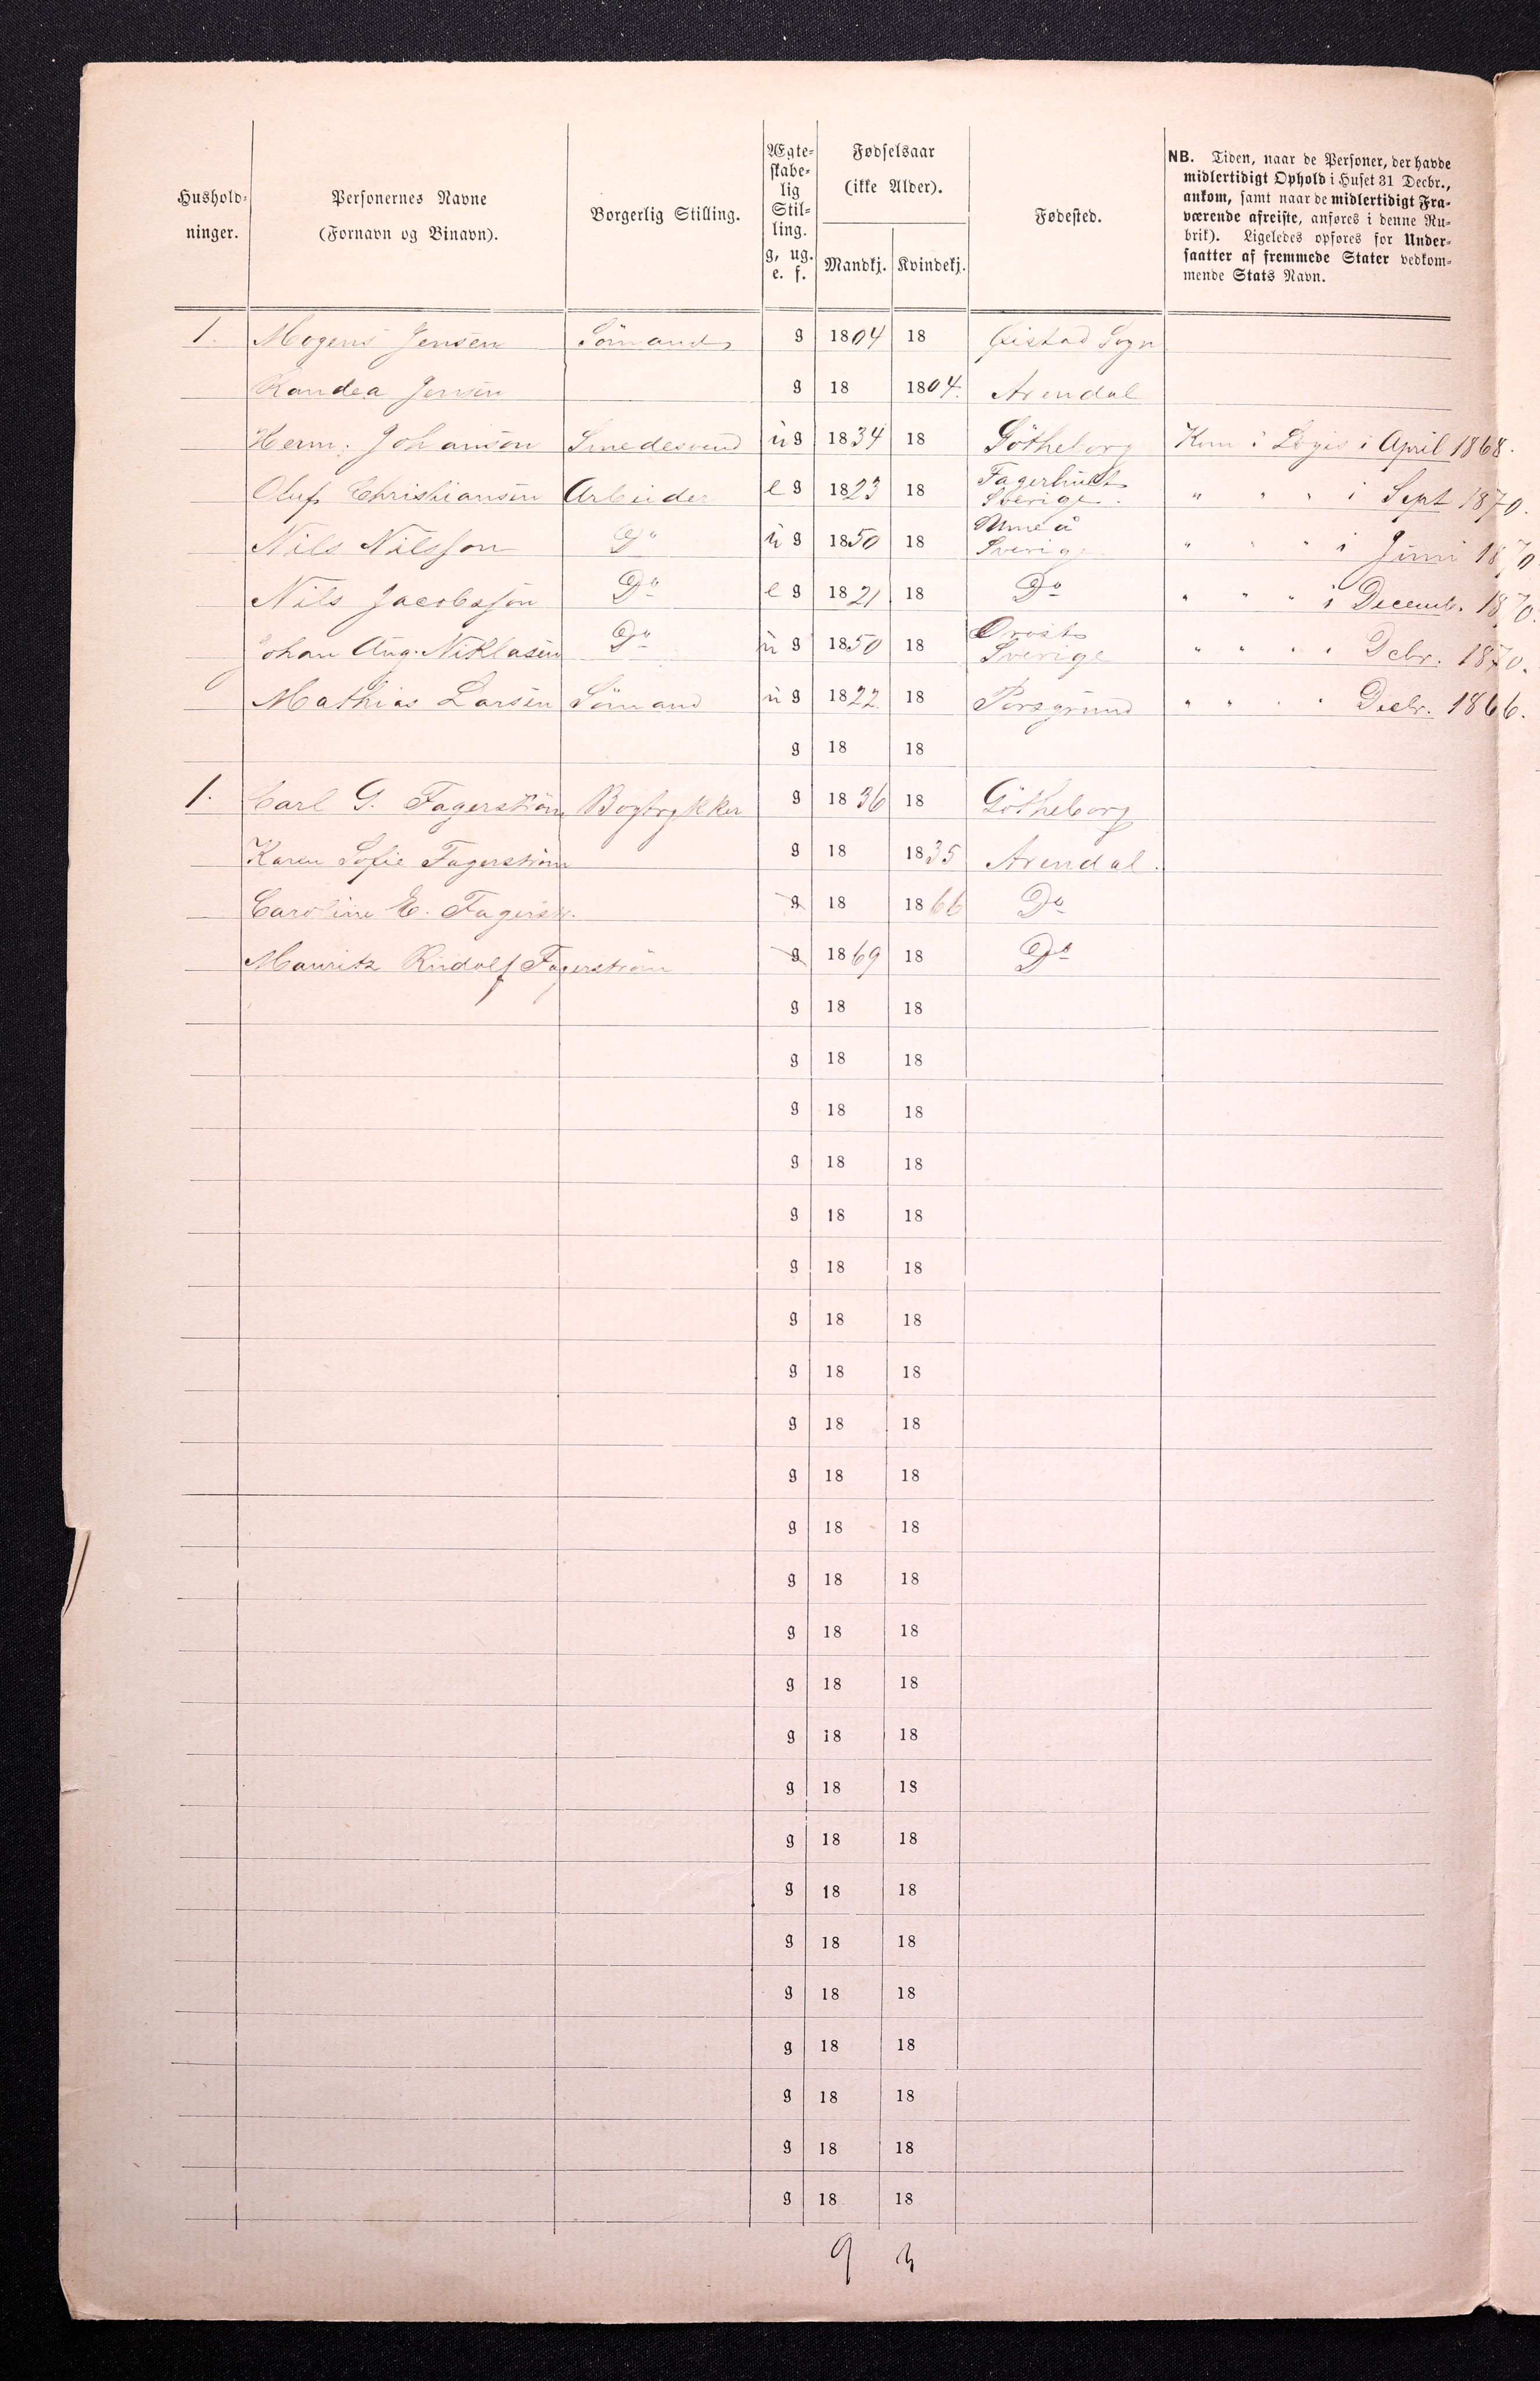 Hushold-
ninger.
Personernes Navne
(Fornavn og Binavn).
Borgerlig Stilling.
Ægte-
skabe-
lig
Stil-
ling.
g, ug.
e. f.
Fødselsaar
(ikke Alder).
Mandkj. Kvindekj.
Fødested.
NB. Tiden, naar de Personer, der havde
midlertidigt Ophold i Huset 31 Decbr.,
ankom, samt naar de midlertidigt Fra-
værende afreiste, anføres i denne Ru-
brik). Ligeledes opføres for Under-
saatter af fremmede Stater vedkom-
mende Stats Navn.
1. Mogens Jensen Sömand g 1804 18 Øistad Sogn
Randea Jensen g 18 1804. Arendal
Herm. Johanson Smedesvend ug 1834 18 Götheborg Kom i Logis i April 1868.
Oluf Christiansen Arbeider e g 1823 18 Fagerhult Sverige. " " " i Sept 1870.
Nils Nilsson Do u g 1850 18 Umeå Sverige " " " i Juni 1870
Nils Jacobsson Do e g 1821 18 Do " " " i Decemb. 1870.
Johan Aug. Niklasen Do u g 1850 18 Orost Sverige " " " " Debr. 1870.
Mathias Larsen Sömand u g 1822 18 Porsgrund " " " " Decbr. 1866.
g 18 18
1. Carl G. Fagerström Bogtrykker g 1836 18 Götheborg
Karen Sofie Fagerström g 18 1835 Arendal.
Caroline E. Fagerstr. g 18 1866 Do
Mauritz Rudolf Fagerström g 1869 18 Do
g 18 18
g 18 18
g 18 18
g 18 18
g 18 18
g 18 18
g 18 18
g 18 18
g 18 18
g 18 18
g 18 18
g 18 18
g 18 18
g 18 18
g 18 18
g 18 18
g 18 18
g 18 18
g 18 18
g 18 18
g 18 18
g 18 18
g 18 18
g 18 18
9 3